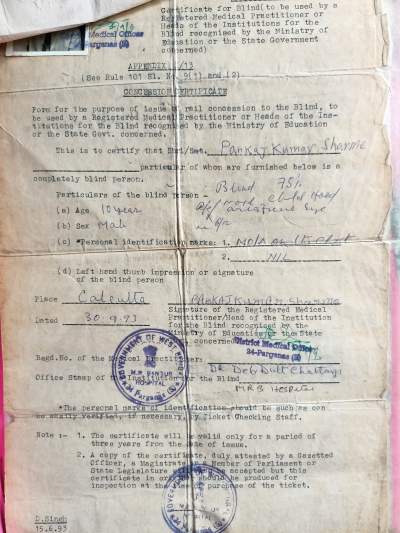 Certificate for Blind(to be used by a
Registered Medical Practitioner or
Heads of the Institutions for the
Blind recognised by the Ministry of
Education or the State Government
concerned)
Medical Officer
Parganas (S)
APPENDIX 1/13
(See Rule 101 Sl. No. 9(1) and (2)
CONCESSION CERTIFICATE
Form for the purpose of issue of rail concession to the Blind, to
be used by a Registered Medical Practitioner or Heads of the Ins-
titutions for the Blind recognised by the Ministry of Education
or the State Govt. concerned.
This is to certify that Shri/Smt. Pankaj Kumar Sharma
particulars of whom are furnished below is a
completely blind person.
Particulars of the blind person - Blind 75%
(a) Age 10 year
(b) Sex Male
(c) *Personal identification marks: 1. Mole on the Chest
2. NIL
(d) Left hand thumb impression or signature
of the blind person
Place Calcutta PANKAJ KUMAR SHARMA
Signature of the Registered Medical
Dated 30.9.93 Practitioner/Head of the Institution
for the Blind recognised by the
Ministry of Education or the State
concerned
District Medical Officer
24-Parganas (S)
Regd.No. of the Medical Practitioner:
DR Deb Dutt Chattarji
Office Stamp of the Institution for the Blind
M R B HOSPITAL
GOVERNMENT OF WEST BENGAL
M.R. BANGUR
HOSPITAL
*The personal marks of identification should be such as can
be easily verified, if necessary, by Ticket Checking Staff.
Note :- 1. The certificate will be valid only for a period of
three years from the date of issue.
2. A copy of the certificate, duly attested by a Gazetted
Officer, a Magistrate, a Member of Parliament or
State Legislature will be accepted but this
certificate in original should be produced for
inspection at the time of purchase of the ticket.
D.Singh
15.6.93